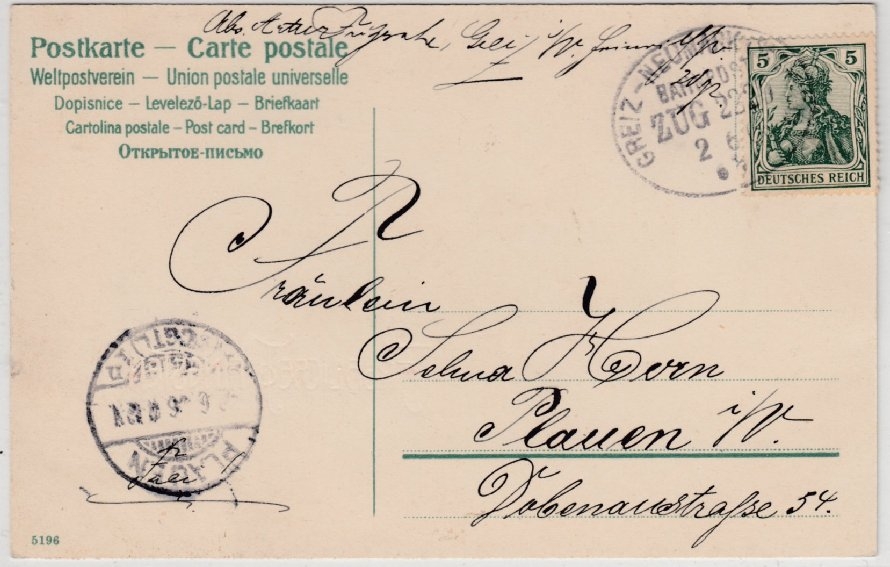 Abs. Artur
Postkarte — Carte postale
Weltpostverein — Union postale universelle
Dopisnice – Levelező-Lap – Briefkaart
Cartolina postale – Post card – Brefkort
Открытое-письмо
GREIZ - NEUMARK
BAHNPOST
ZUG
2 6
5 5
DEUTSCHES REICH
Fräulein
Selma Horn
Plauen i/V.
Dobenaustraße 54.
PLAUEN
frei
5196